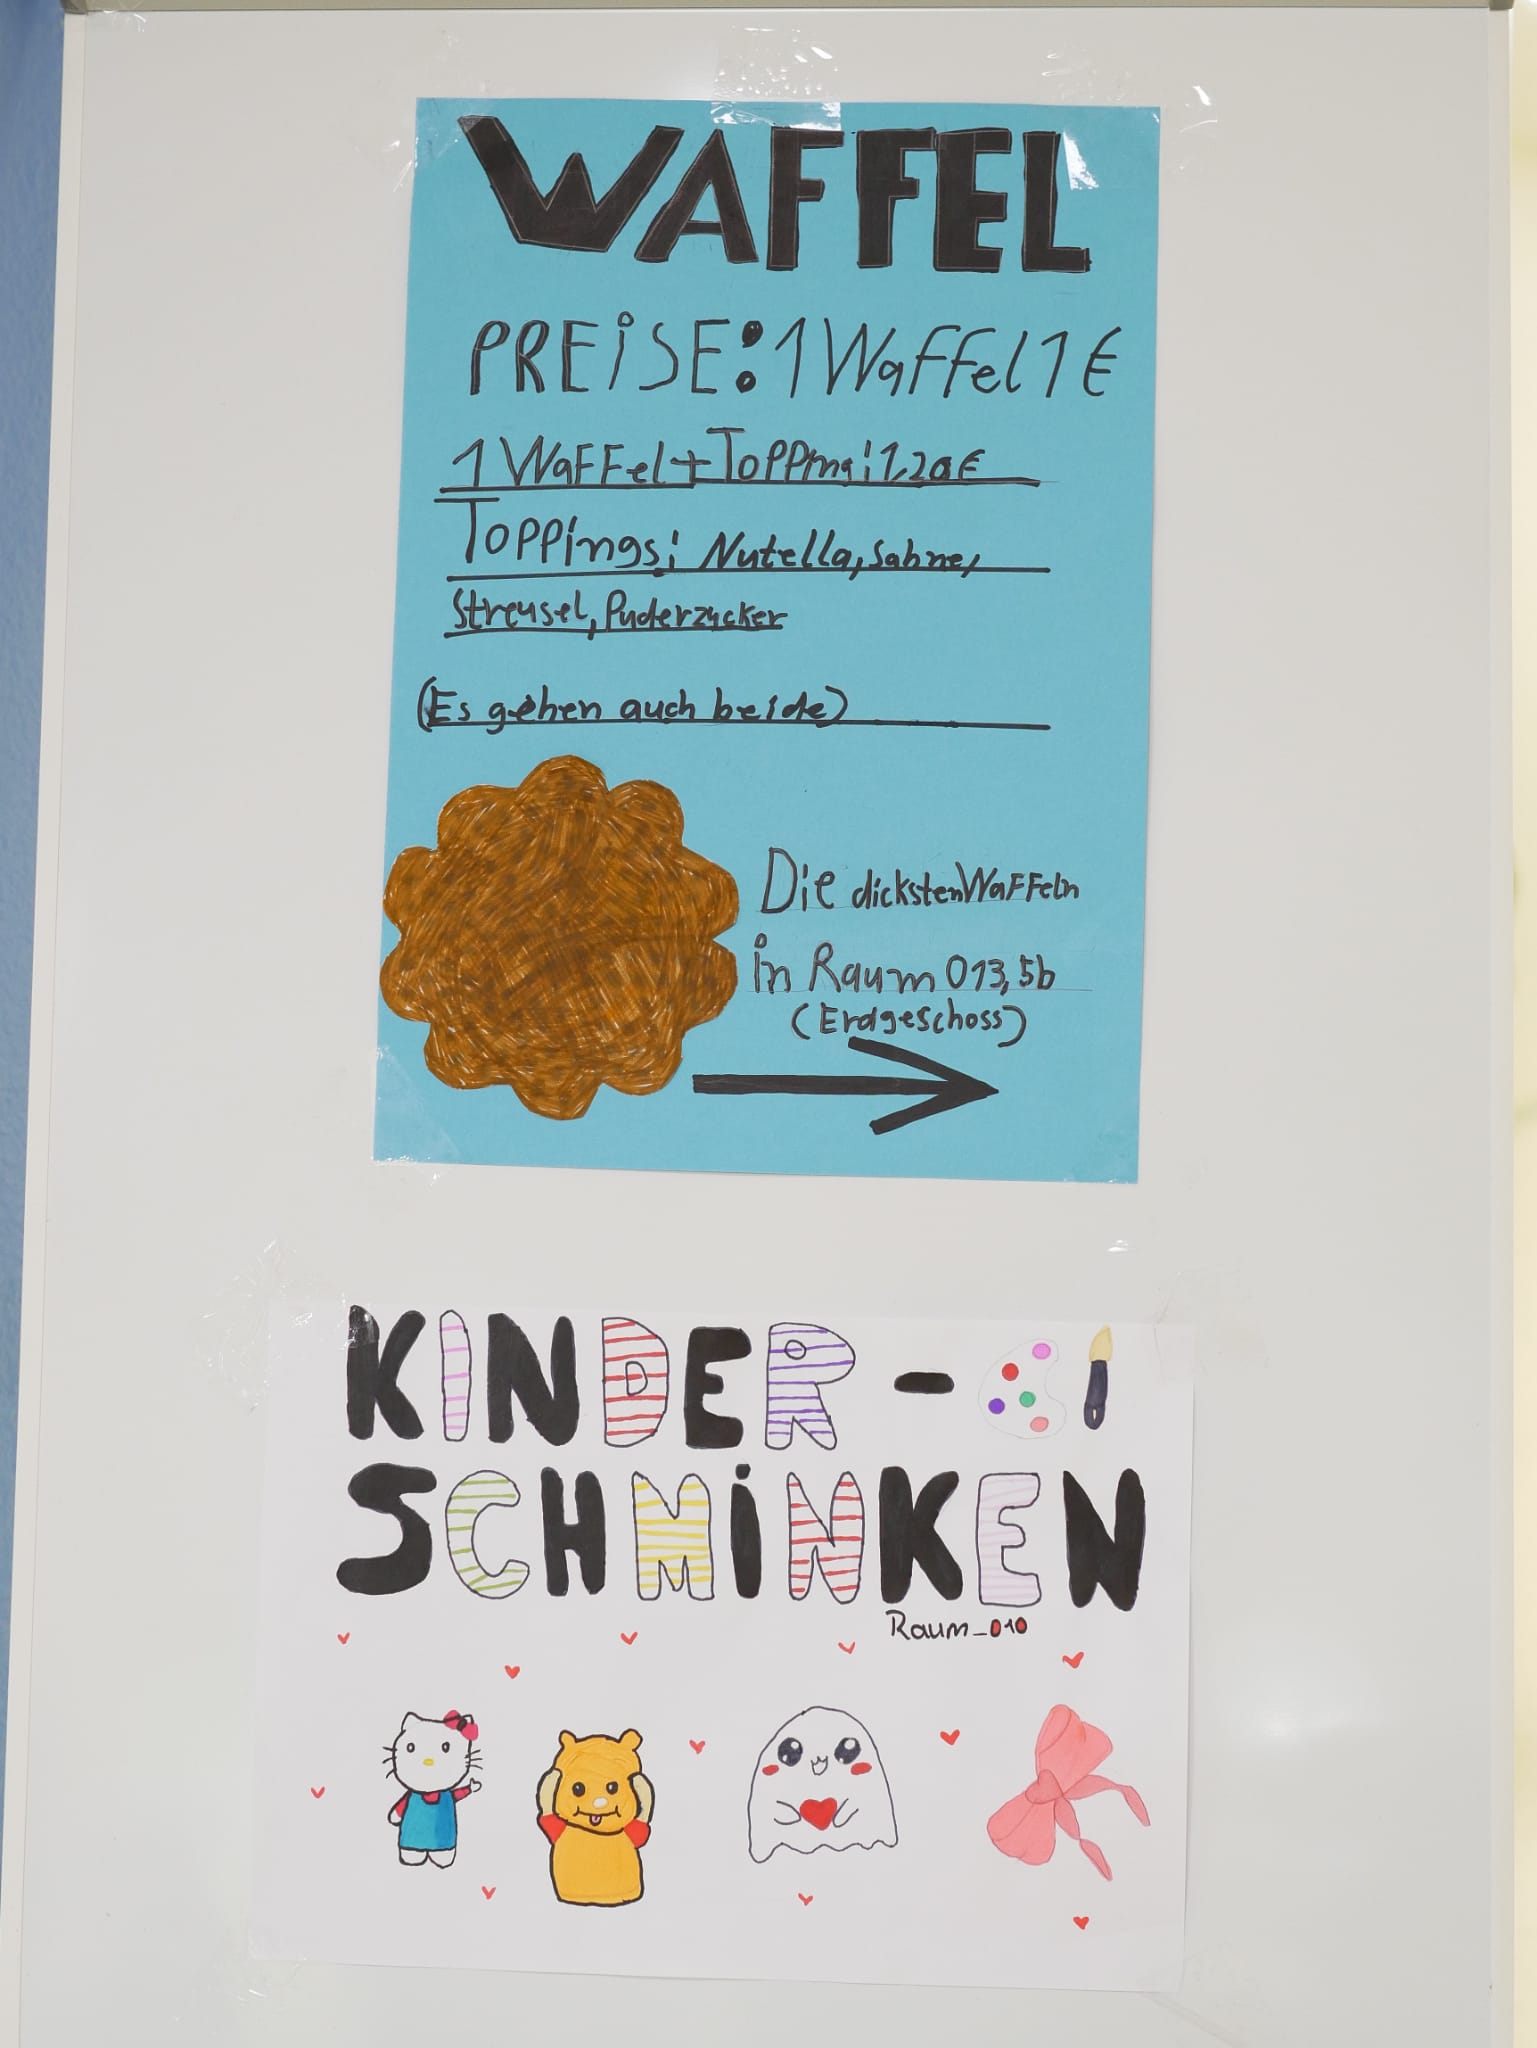 WAFFEL
PREISE: 1 Waffel 1 €
1 Waffel + Topping: 1,20 €
Toppings: Nutella, Sahne,
Streusel, Puderzucker
(Es gehen auch beide)
Die dicksten Waffeln
in Raum 013, 5b
(Erdgeschoss)
KINDER-
SCHMINKEN
Raum_010